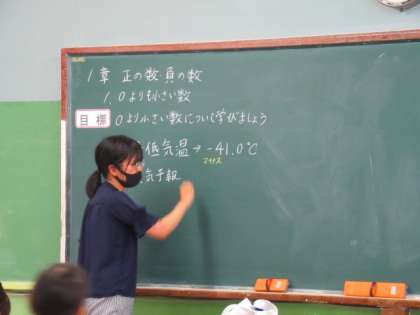 1章 正の数 負の数
1.0よりも小さい数
目標 0より小さい数について学びましょう
低気温→-41.0℃
マイナス
気予報